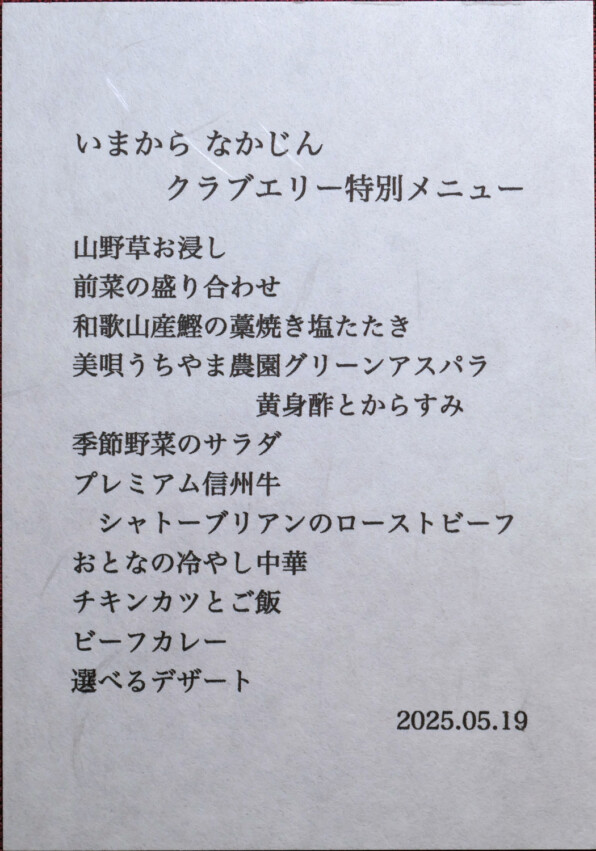 いまから なかじん
クラブエリー特別メニュー
山野草お浸し
前菜の盛り合わせ
和歌山産鰹の藁焼き塩たたき
美唄うちやま農園グリーンアスパラ
黄身酢とからすみ
季節野菜のサラダ
プレミアム信州牛
シャトーブリアンのローストビーフ
おとなの冷やし中華
チキンカツとご飯
ビーフカレー
選べるデザート
2025.05.19